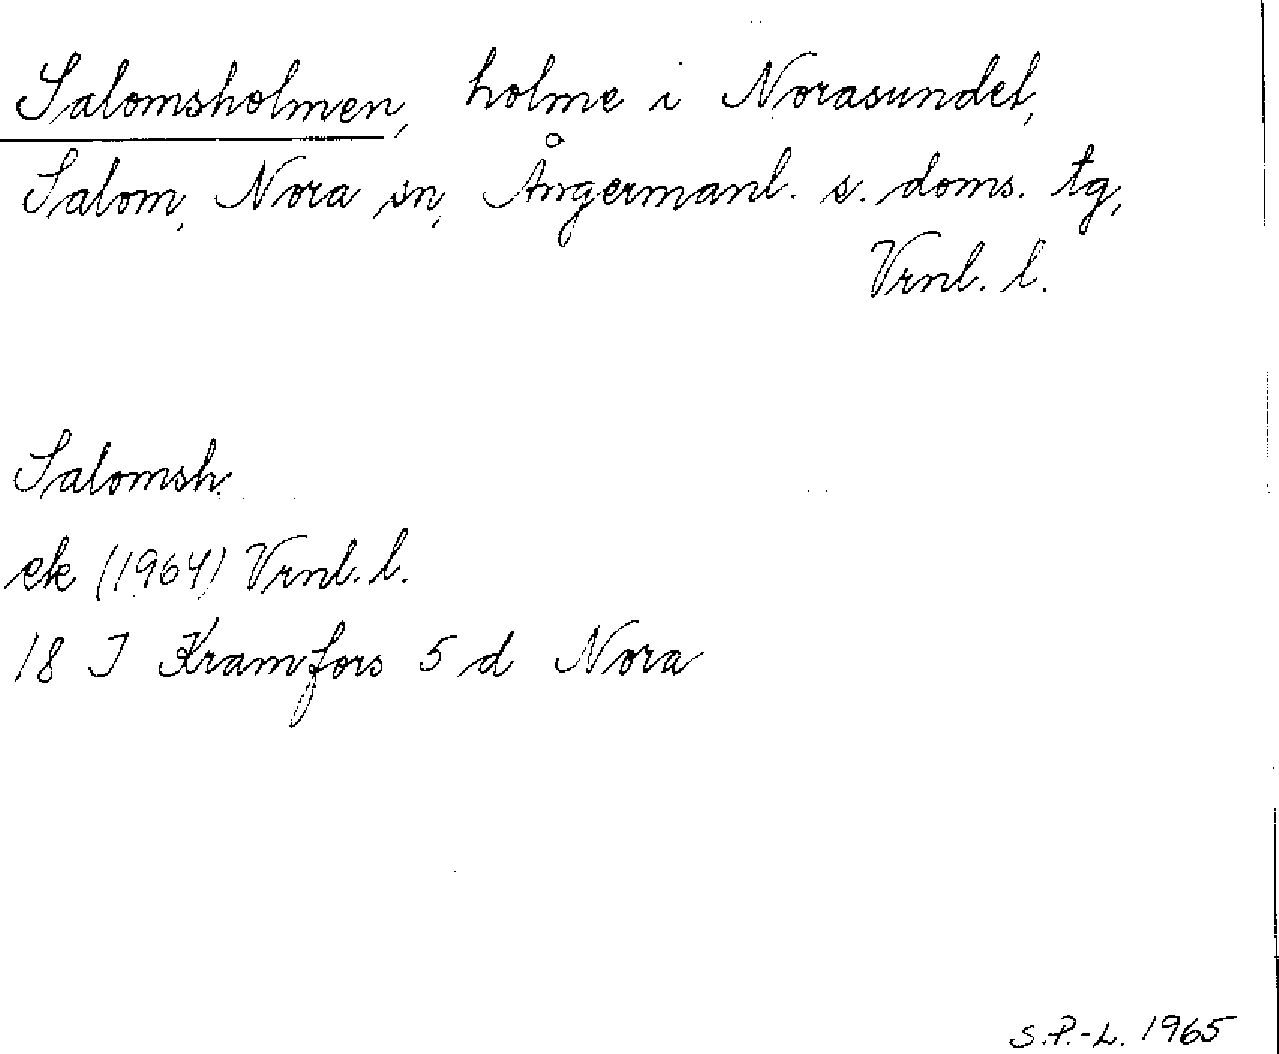 Salomsholmen, holme i Norasundet,
Salom, Nora sn, Ångermanl. s. doms. tg,
Vrnl. l.
Salomsh.
ek (1964) Vrnl. l.
18 I Kramfors 5 d Nora
S.P.-L. 1965